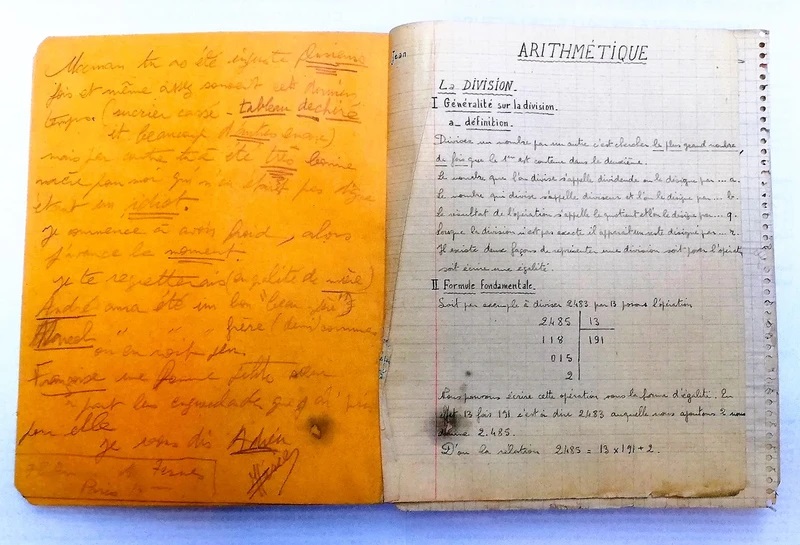 Maman tu as été injuste plusieurs
fois et même assez souvent ces derniers
temps. (encrier cassé - tableau déchiré
et beaucoup d'autres encore)
mais par contre tu as été très bonne
mère pour moi qui n'en étais pas digne
étant un idiot.
Je commence à avoir froid, alors
j'avance le moment
je te regretterais (en qualité de mère)
André aura été un bon "beau père"
Marcel " " " frère (demi)
on en voit peu.
Françoise une bonne petite sœur
à part les engueulades que j'ai pris
pour elle
je vous dis Adieu
Paris
Jean
ARITHMÉTIQUE
La DIVISION.
I Généralité sur la division.
a_ définition.
Diviser un nombre par un autre c'est chercher le plus grand nombre
de fois que le 1er est contenu dans le deuxième.
Le nombre que l'on divise s'appelle dividende on le désigne par... a.
Le nombre qui divise s'appelle diviseur et l'on le désigne par... b.
Le résultat de l'opération s'appelle le quotient et l'on le désigne par... q.
Lorsque la division n'est pas exacte il apparaît un reste désigné par... r.
Il existe deux façons de représenter une division soit poser l'opérat
soit écrire une égalité.
II Formule fondamentale.
Soit par exemple à diviser 2483 par 13 posons l'opération
2485 13
118 191
015
2
Nous pouvons écrire cette opération sous la forme d'égalité. En
effet 13 fois 191 c'est à dire 2483 auquelle nous ajoutons 2 nous
donne 2.485.
D'où la relation 2485 = 13 x 191 + 2.